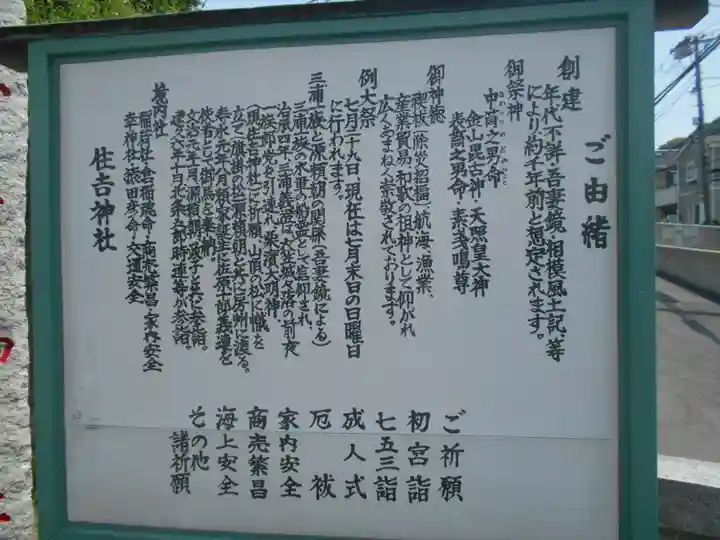 ご由緒
創建
年代不詳 吾妻鏡、相模風土記、等
により約千年前と想定されます。
御祭神
中筒之男命
金山毘古神・天照皇大神
表筒之男命・素戔鳴尊
御神徳
禊祓(除災招福)航海、漁業、
産業貿易、和歌の祖神として仰がれ
広くあまねく崇敬されております。
例大祭
七月二十九日、現社は七月末日の日曜日
に行われます。
三浦一族と源頼朝の関係(吾妻鏡による)
三浦一族の水軍の釣霊として信仰され
治承四年、三浦義澄は衣笠城々落の前夜
一族郎党を引連れ、栗濱大明神
(現住吉神社)に祈願、山頂の松に幟を
立て、旗掛の松、源頼朝と共に房州に渡る。
寿永元年八月、頼家誕生に佐原十郎義連を
使者として御馬を奉納。
文治元年一月、源頼朝、政子と共に参詣。
建久六年十月、北条五郎時連等が参詣。
境内社
稲荷社、倉稲魂命・商売繁昌・家内安全
幸神社、猿田彦命・交通安全
住吉神社
ご祈願
初宮詣
七五三詣
成人式
厄祓
家内安全
商売繁昌
海上安全
その他
諸祈願